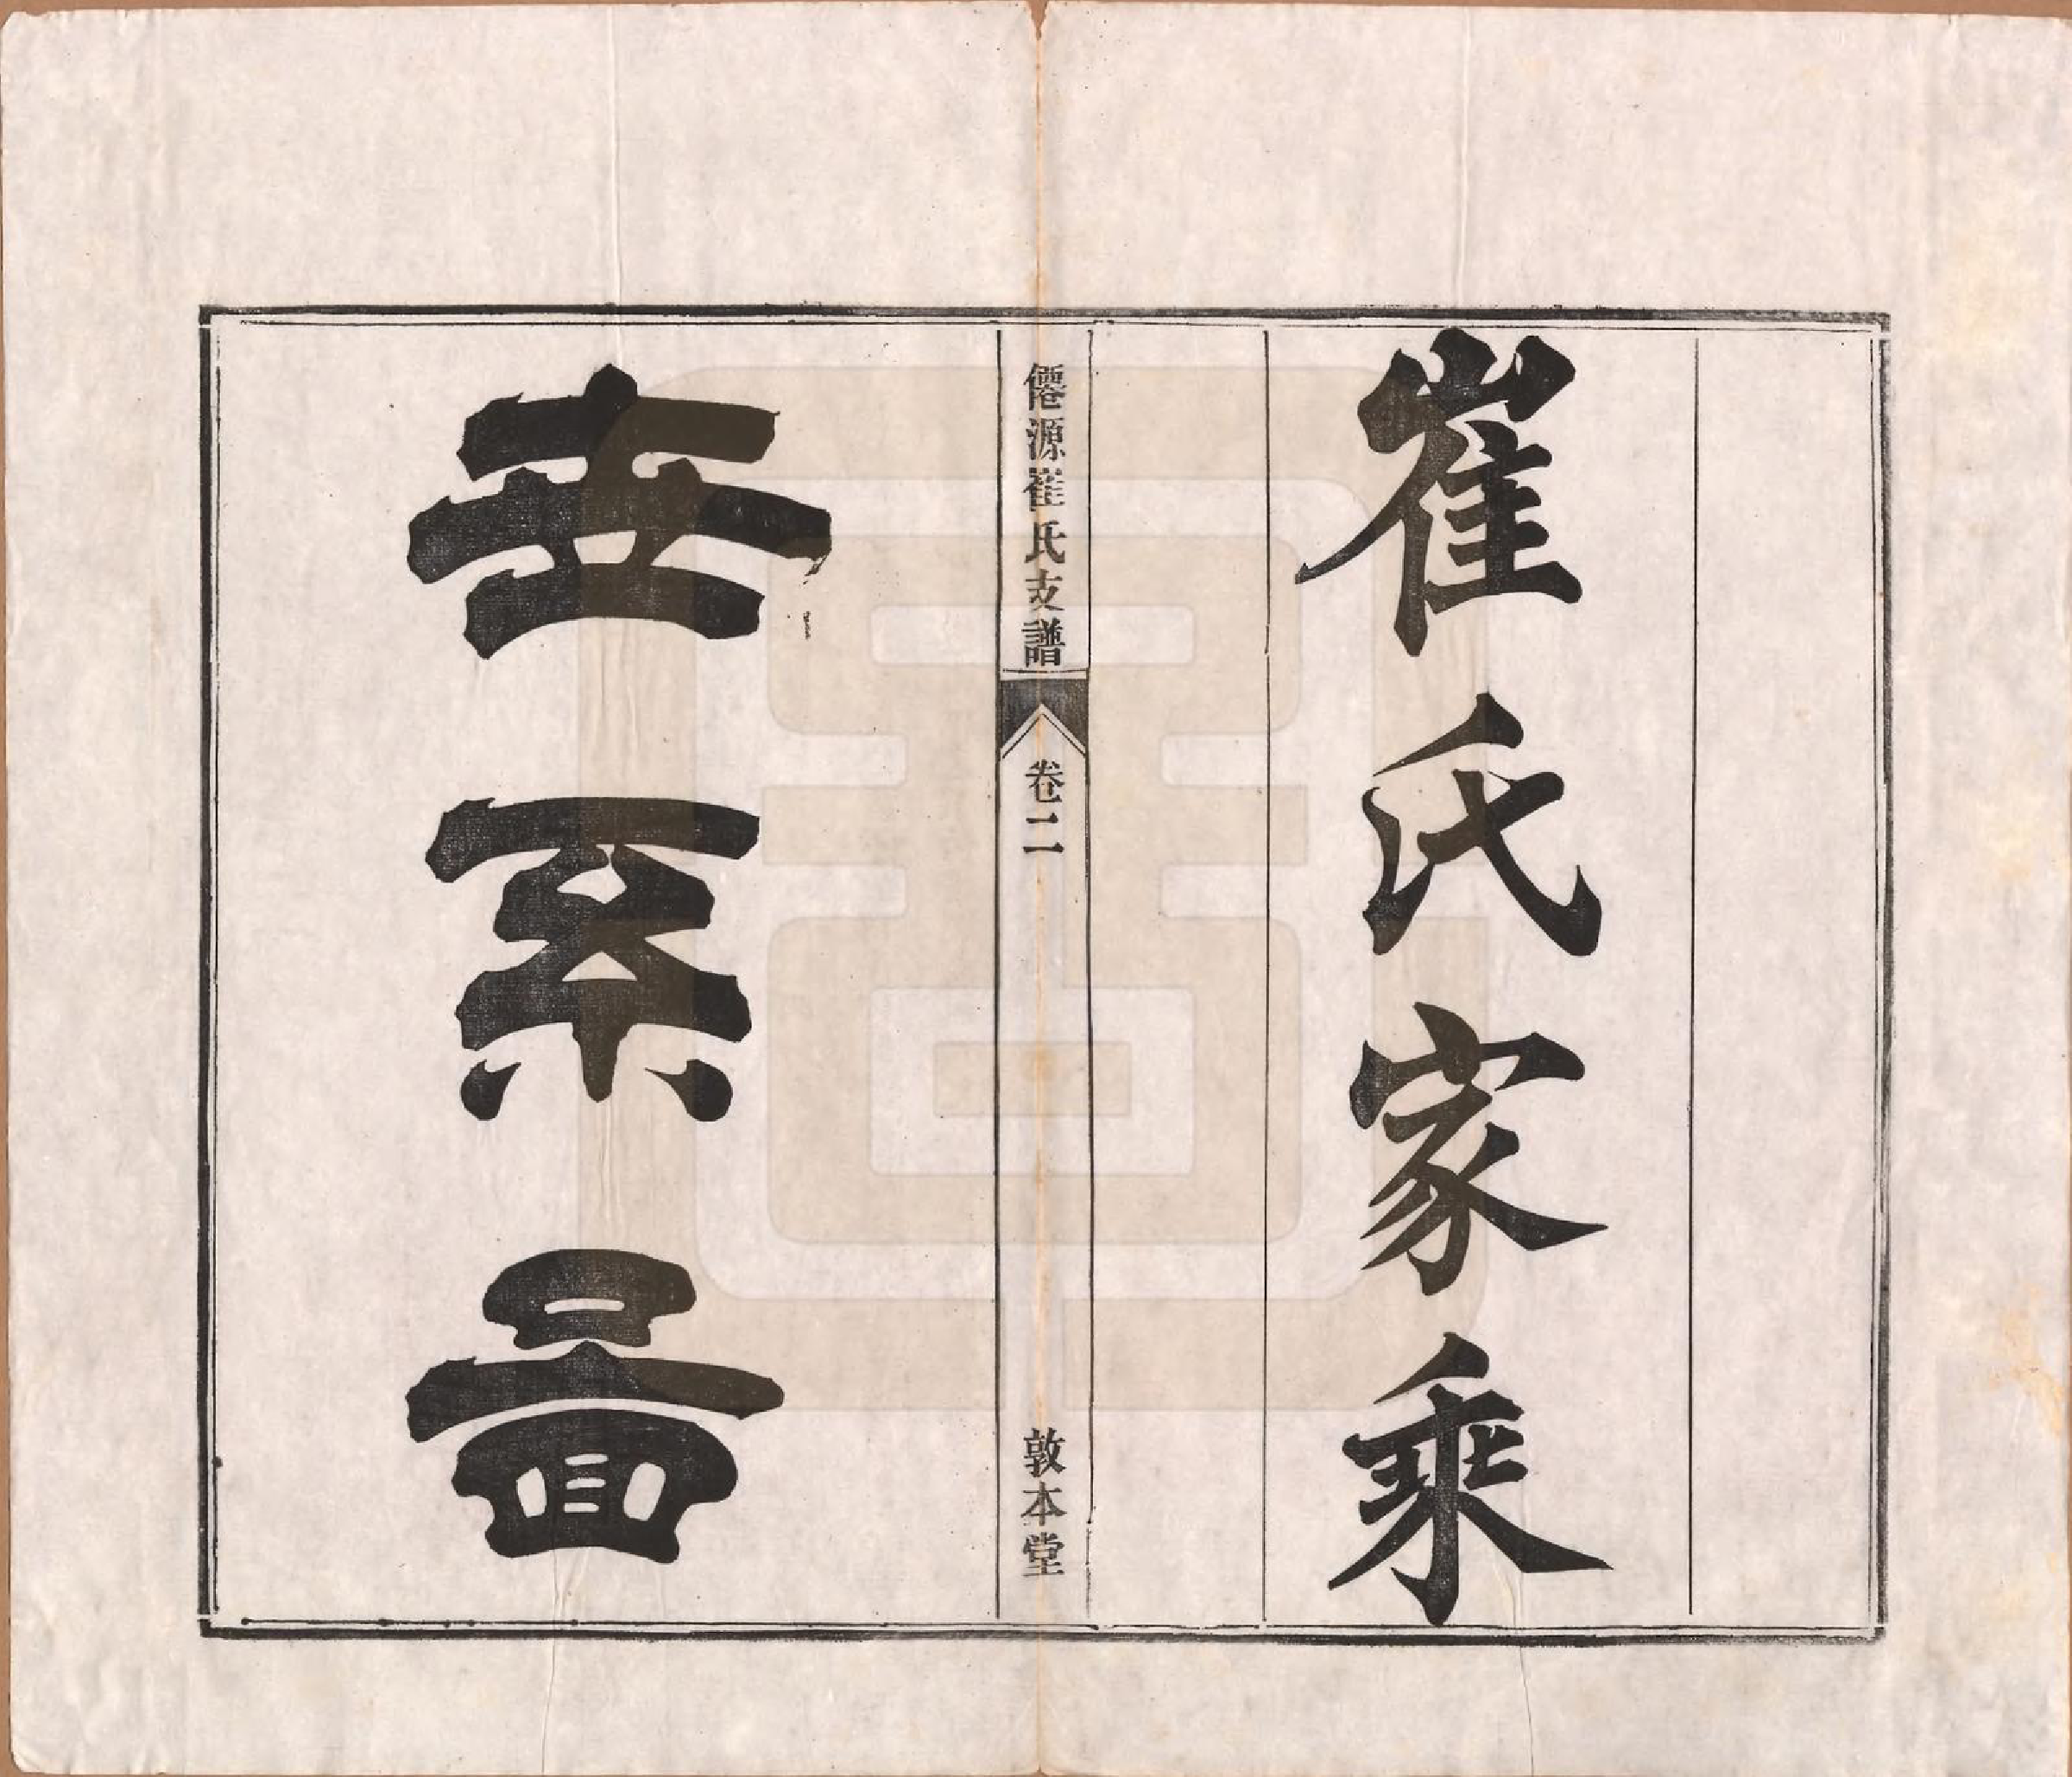 崔氏家乘
僊源崔氏支譜
卷二
敦本堂
世系圖